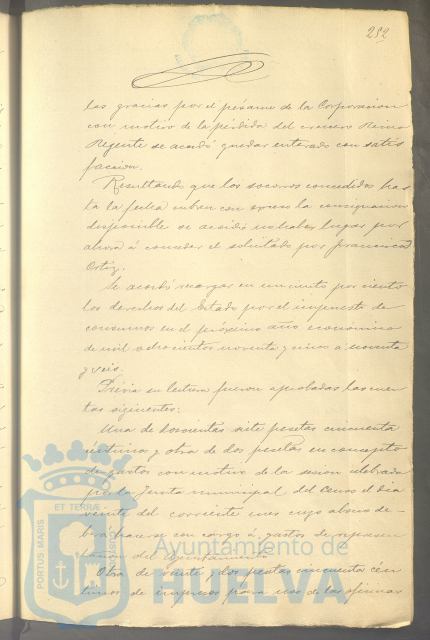 252
las gracias por el pésame de la Corporacion
con motivo de la pérdida del crucero Reina
Regente se acordó quedar enterado con satis
faccion.
Resultando que los socorros concedidos has
ta la fecha cubren con exceso la consignacion
disponible se acordó no haber lugar por
ahora á conceder el solicitado por Francisca
Ortiz.
Se acordó recargar en un ciento por ciento
los derechos del Estado por el impuesto de
consumos en el próximo año económico
de mil ochocientos noventa y cinco á noventa
y seis.
Prévia su lectura fueron aprobadas las cuen
tas siguientes:
Una de doscientas siete pesetas cincuenta
céntimos y otra de dos pesetas en concepto
de gastos con motivo de la sesion celebrada
por la Junta municipal del Censo el dia
veinte del corriente mes cuyo abono de-
berá hacerse con cargo á gastos de represen
tacion del Ayuntamiento.
Otra de veinte y dos pesetas cincuenta cén
timos de impresos para uso de las oficinas
PORTUS MARIS
ET TERRÆ
Ayuntamiento de
HUELVA